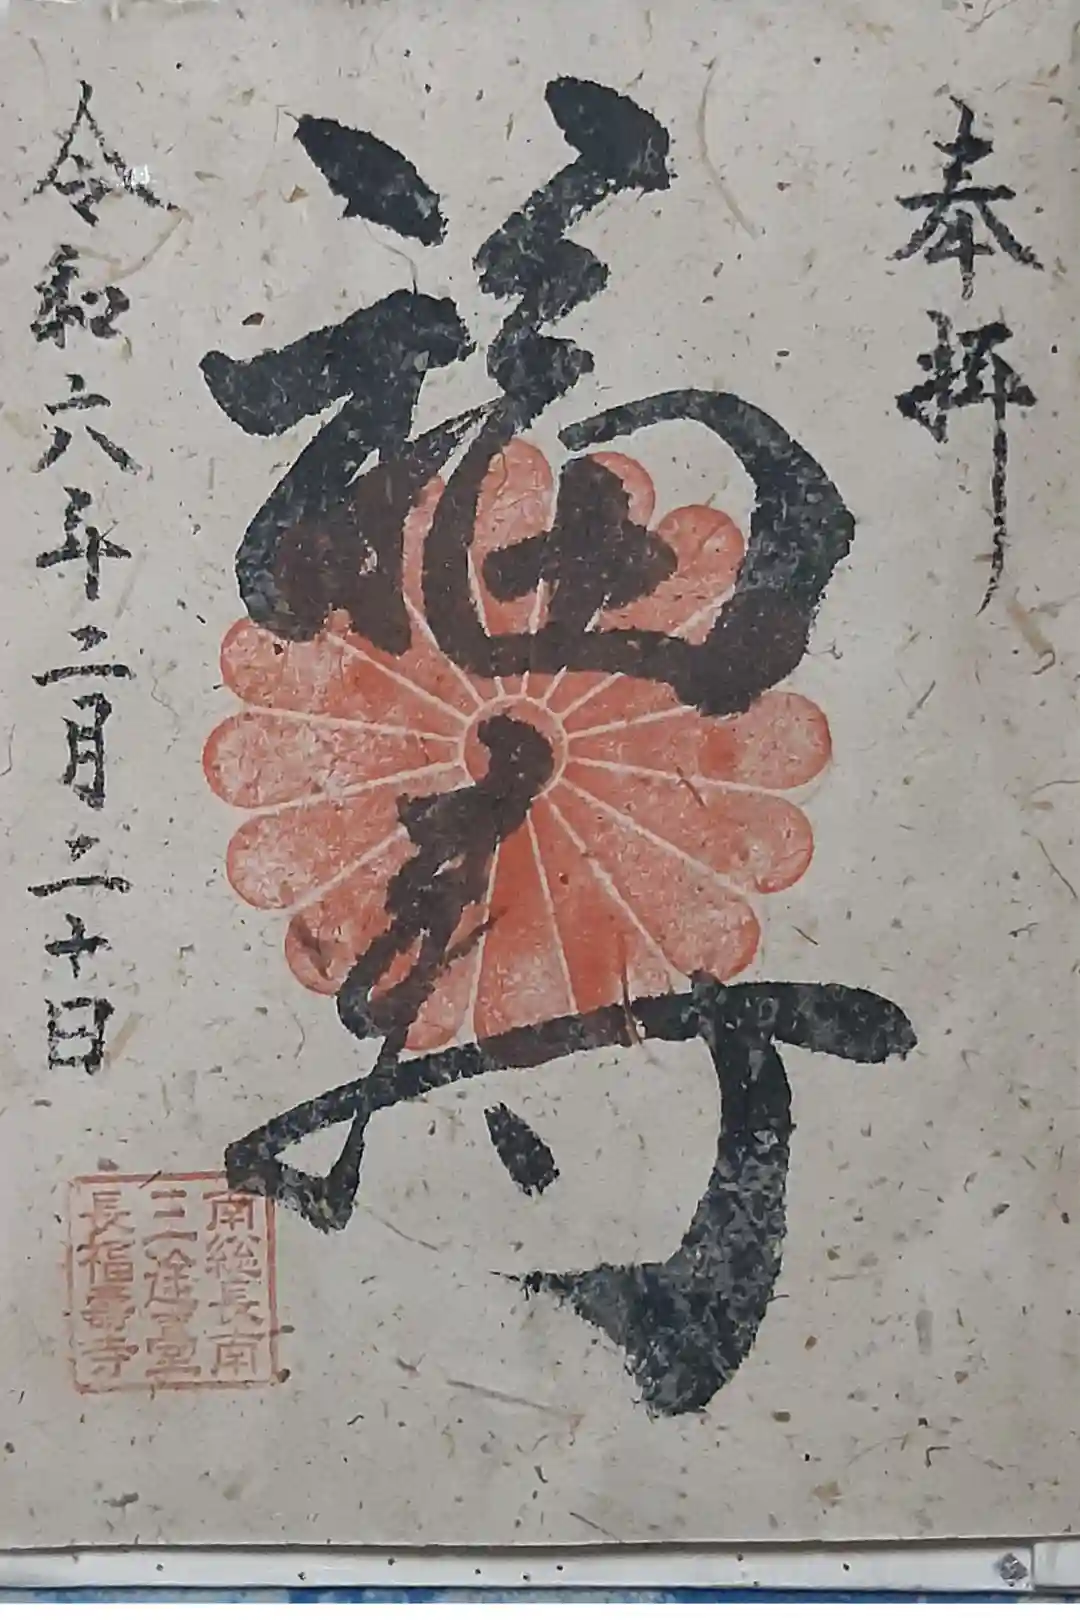 奉拝
福寿
令和六年二月二十日
南総長南
三途臺
長福壽寺